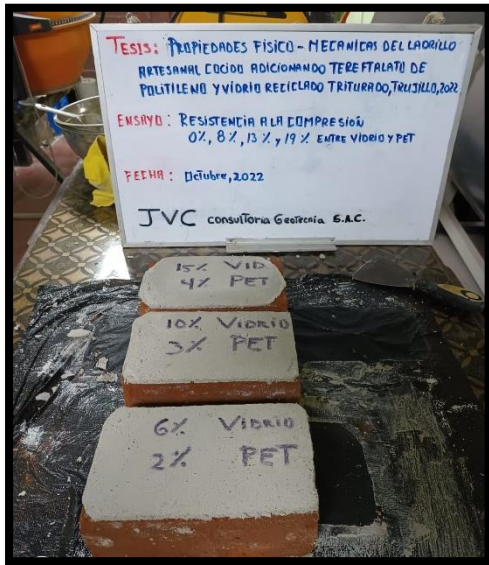 TESIS: PROPIEDADES FISICO - MECANICAS DEL LADRILLO
ARTESANAL COCIDO ADICIONANDO TEREFTALATO DE
POLITILENO Y VIDRIO RECICLADO TRITURADO, TRUJILLO, 2022
ENSAYO: RESISTENCIA A LA COMPRESIÓN
0%, 8%, 13% y 19% ENTRE VIDRIO Y PET
FECHA: Octubre, 2022
JVC consulToria GeoTecnia S.A.C.
15% VID
4% PET
10% VIDRIO
3% PET
6% VIDRIO
2% PET